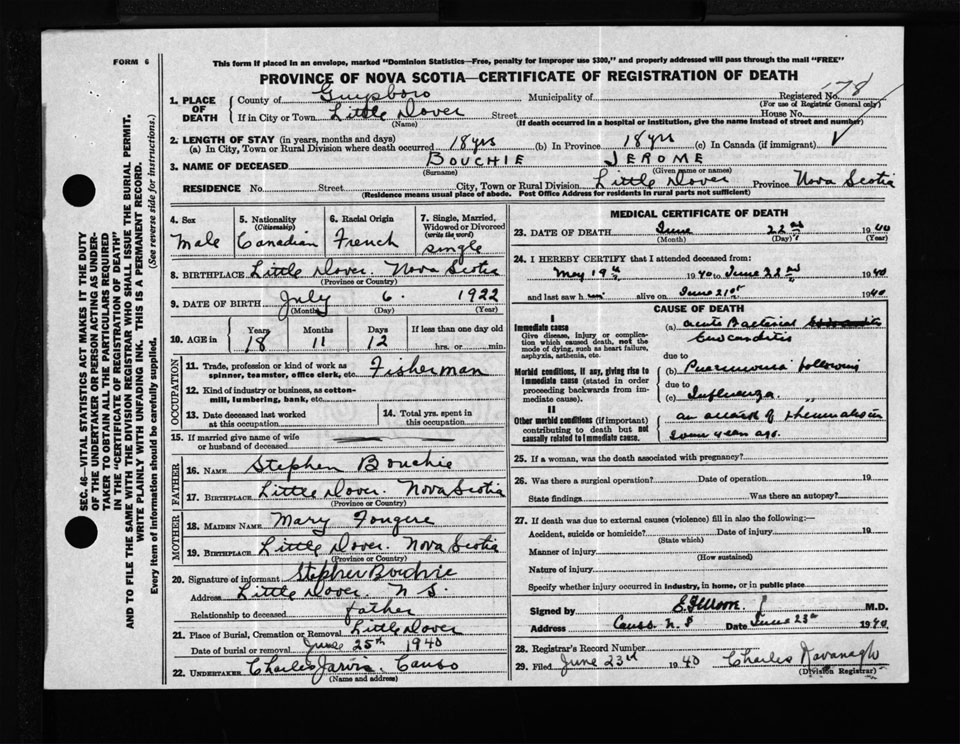 FORM 6
This form if placed in an envelope, marked "Dominion Statistics—Free, penalty for improper use $300," and properly addressed will pass through the mail "FREE"
PROVINCE OF NOVA SCOTIA—CERTIFICATE OF REGISTRATION OF DEATH
Registered No. 78
(For use of Registrar General only)
1. PLACE OF DEATH
County of Guysboro Municipality of
If in City or Town Little Dover Street House No.
(Name) (If death occurred in a hospital or institution, give the name instead of street and number)
2. LENGTH OF STAY (in years, months and days)
(a) In City, Town or Rural Division where death occurred 18 yrs (b) In Province 18 yrs (c) In Canada (if immigrant)
3. NAME OF DECEASED BOUCHIE JEROME
(Surname) (Given name or names)
RESIDENCE No. Street City, Town or Rural Division Little Dover Province Nova Scotia
(Residence means usual place of abode. Post Office Address for residents in rural parts not sufficient)
SEC. 46—VITAL STATISTICS ACT MAKES IT THE DUTY
OF THE UNDERTAKER OR PERSON ACTING AS UNDER-
TAKER TO OBTAIN ALL THE PARTICULARS REQUIRED
IN THE "CERTIFICATE OF REGISTRATION OF DEATH"
AND TO FILE THE SAME WITH THE DIVISION REGISTRAR WHO SHALL ISSUE THE BURIAL PERMIT.
WRITE PLAINLY WITH UNFADING INK. THIS IS A PERMANENT RECORD.
Every item of information should be carefully supplied. (See reverse side for instructions.)
4. Sex Male
5. Nationality (Citizenship) Canadian
6. Racial Origin French
7. Single, Married, Widowed or Divorced (write the word) single
8. BIRTHPLACE Little Dover. Nova Scotia
(Province or Country)
9. DATE OF BIRTH July 6. 1922
(Month) (Day) (Year)
10. AGE in Years Months Days If less than one day old
18 11 12 hrs. or min.
OCCUPATION
11. Trade, profession or kind of work as spinner, teamster, office clerk, etc. Fisherman
12. Kind of industry or business, as cotton-mill, lumbering, bank, etc.
13. Date deceased last worked at this occupation
14. Total yrs. spent in this occupation
15. If married give name of wife or husband of deceased
FATHER
16. NAME Stephen Bouchie
17. BIRTHPLACE Little Dover. Nova Scotia
(Province or Country)
MOTHER
18. MAIDEN NAME Mary Fougere
19. BIRTHPLACE Little Dover. Nova Scotia
(Province or Country)
20. Signature of informant Stephen Bouchie
Address Little Dover. N S.
Relationship to deceased father
21. Place of Burial, Cremation or Removal Little Dover
Date of burial or removal June 25th 1940
22. UNDERTAKER Charles Jarvis. Canso
(Name and address)
MEDICAL CERTIFICATE OF DEATH
23. DATE OF DEATH June 22nd 1940
(Month) (Day) (Year)
24. I HEREBY CERTIFY that I attended deceased from:
May 19th 1940 to June 22nd 1940
and last saw him alive on June 21st 1940
CAUSE OF DEATH
I
Immediate cause
Give disease, injury or complication which caused death, not the mode of dying, such as heart failure, asphyxia, asthenia, etc.
(a) acute Bacterial
Endocarditis
due to
Morbid conditions, if any, giving rise to immediate cause (stated in order proceeding backwards from immediate cause).
(b) Pneumonia following
due to
(c) Influenza. "
II
Other morbid conditions (if important) contributing to death but not causally related to immediate cause.
an attack of rheumatism
some years ago.
25. If a woman, was the death associated with pregnancy?
26. Was there a surgical operation? Date of operation 19
State findings Was there an autopsy?
27. If death was due to external causes (violence) fill in also the following:—
Accident, suicide or homicide? Date of injury 19
(State which)
Manner of injury
(How sustained)
Nature of injury
Specify whether injury occurred in industry, in home, or in public place
Signed by M.D.
Address Canso N.S Date June 23rd 1940
28. Registrar's Record Number
29. Filed June 23rd 1940 Charles Kavanagh
(Division Registrar)